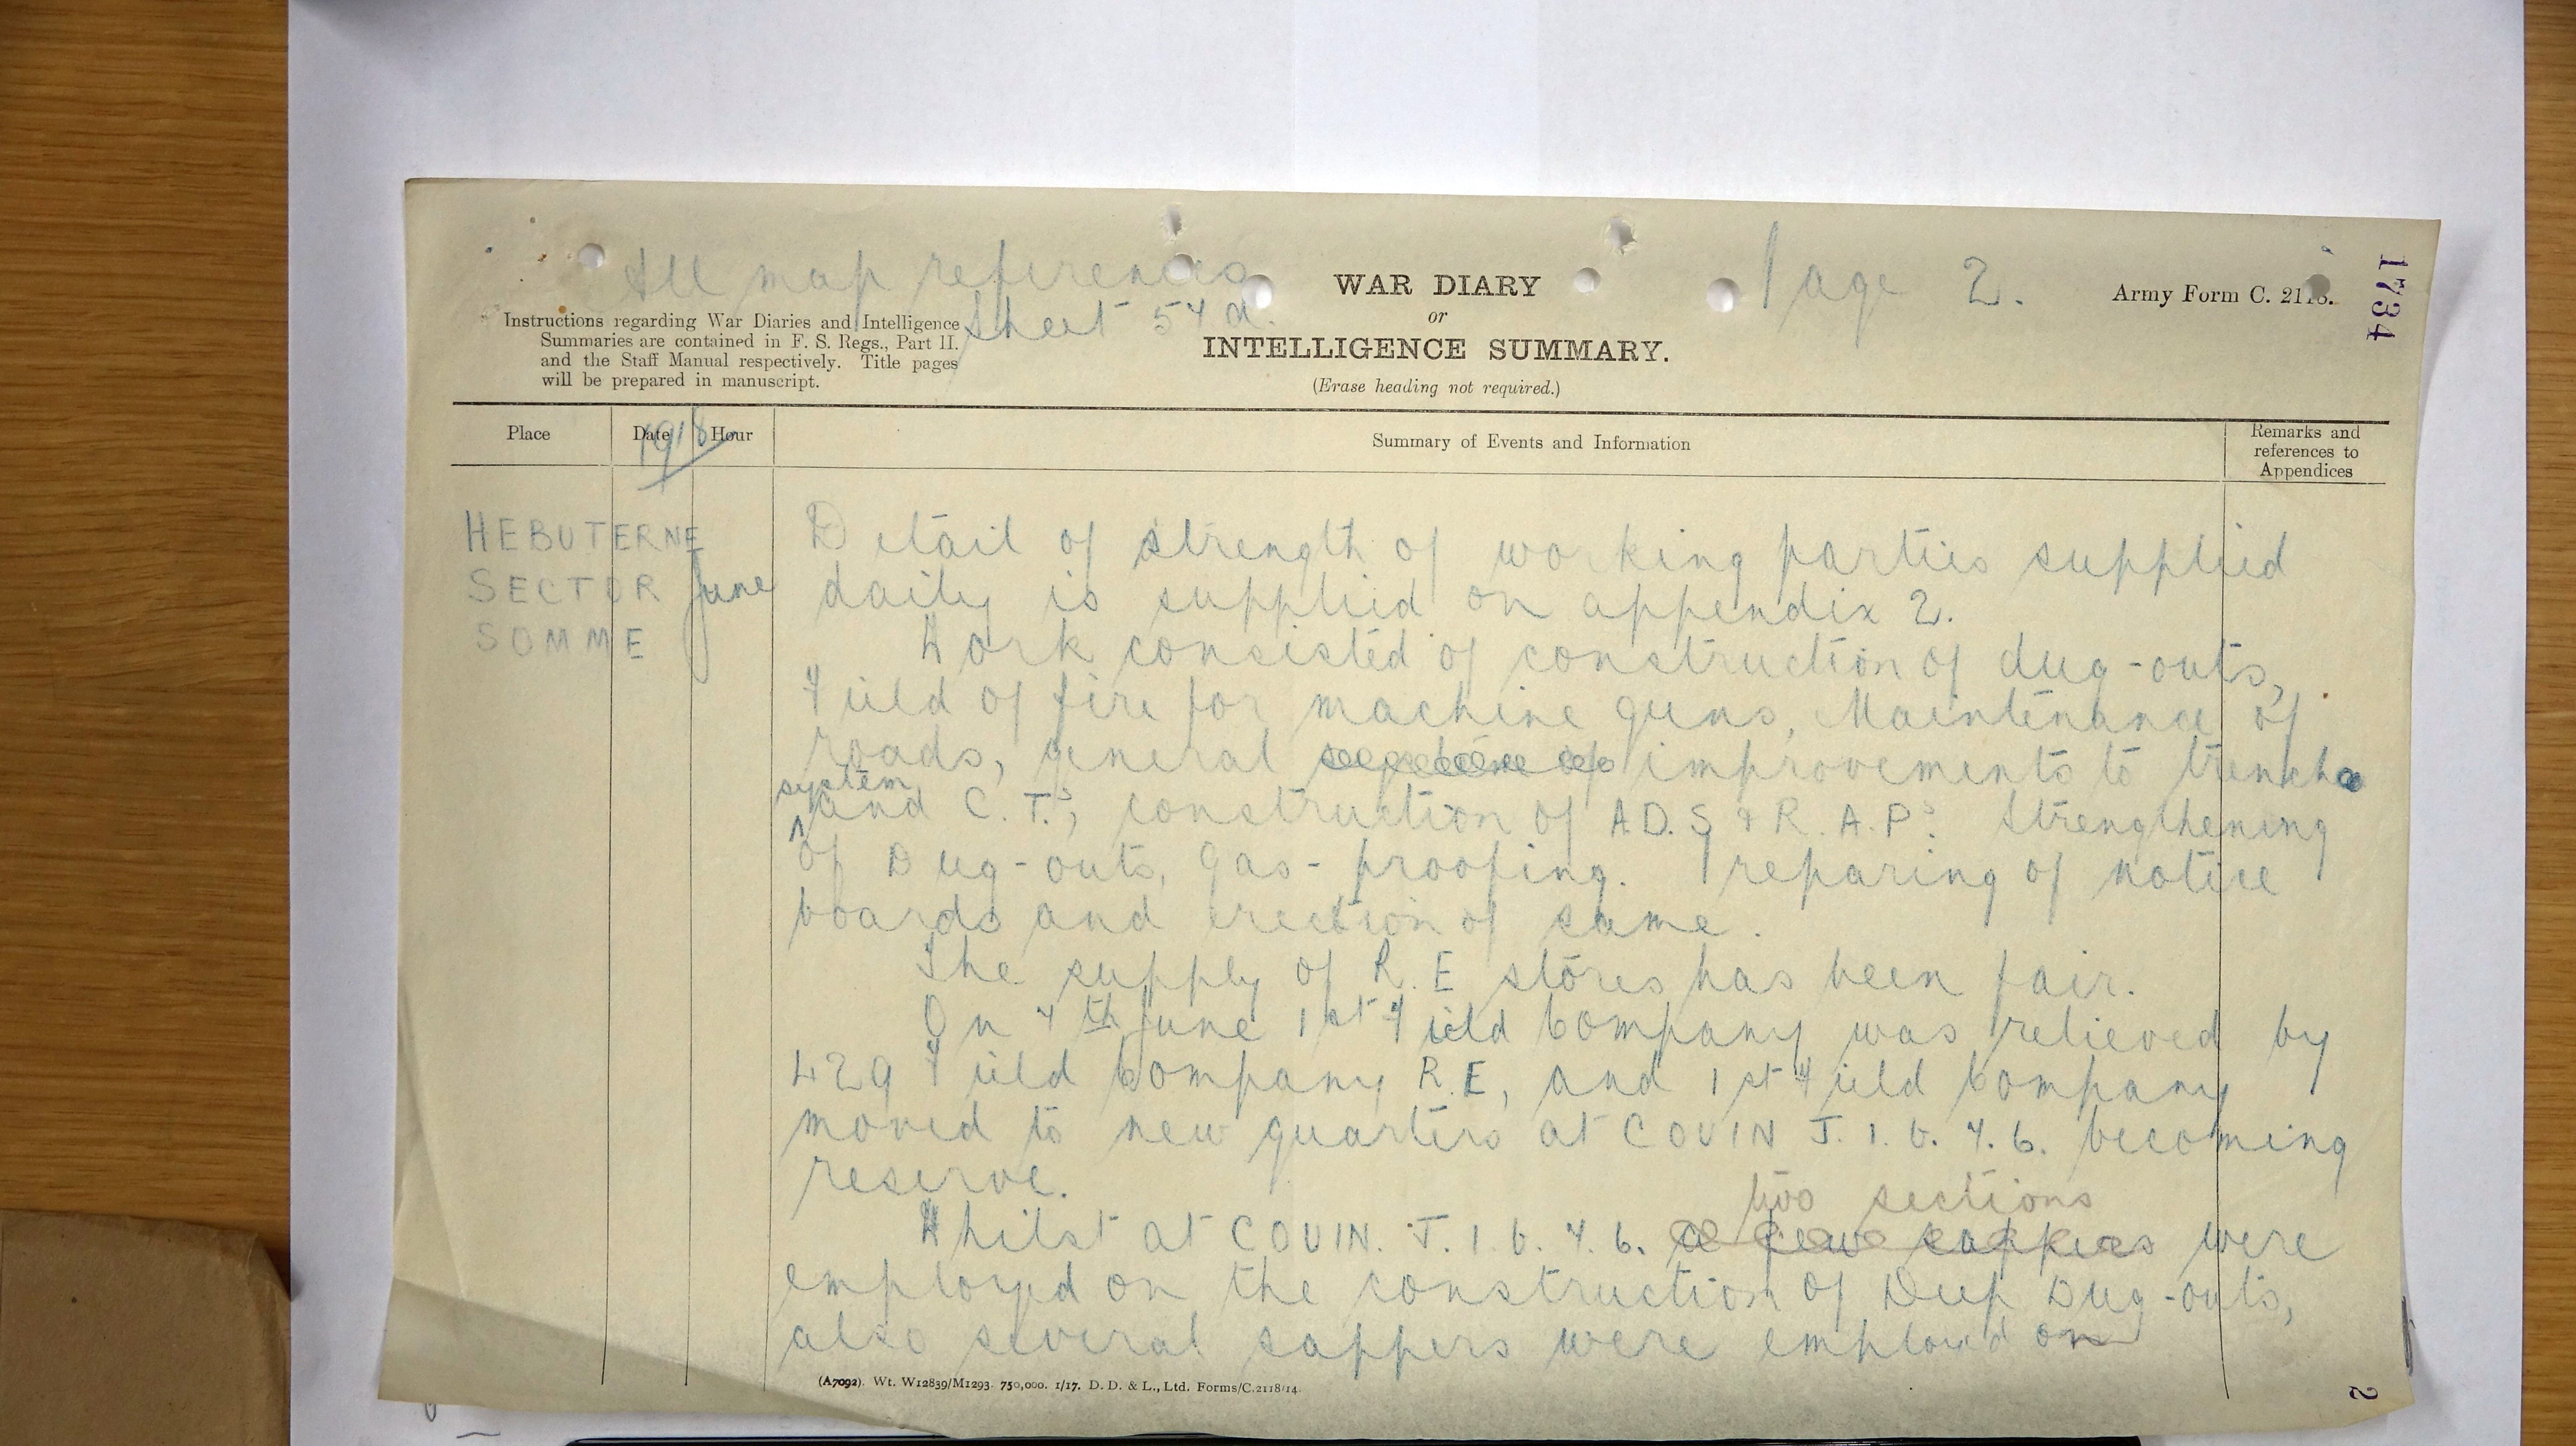 All map references
Sheet 57 d.
Page 2.
1734
WAR DIARY
or
INTELLIGENCE SUMMARY.
(Erase heading not required.)
Army Form C. 2118.
Instructions regarding War Diaries and Intelligence
Summaries are contained in F. S. Regs., Part II.
and the Staff Manual respectively. Title pages
will be prepared in manuscript.
Place Date Hour Summary of Events and Information Remarks and references to Appendices
1918
HEBUTERNE
SECTOR June
SOMME
Detail of strength of working parties supplied
daily is supplied on appendix 2.
Work consisted of construction of dug-outs,
Field of fire for machine guns, Maintenance of
roads, general improvements to trench
system
and C.T.s, construction of A.D.S & R.A.Ps. Strengthening
of Dug-outs, Gas-proofing. Preparing of notice
boards and erection of same.
The supply of R.E stores has been fair.
On 7th June 1st Field Company was relieved by
429 Field Company R.E, and 1st Field Company
moved to new quarters at COUIN J.1.b.7.6. becoming
reserve.
two sections
Whilst at COUIN. J.1.b.7.6. a few sappers were
employed on the construction of Deep Dug-outs,
also several sappers were employed on
(A7092). Wt. W12839/M1293. 750,000. 1/17. D. D. & L., Ltd. Forms/C.2118/14.
2